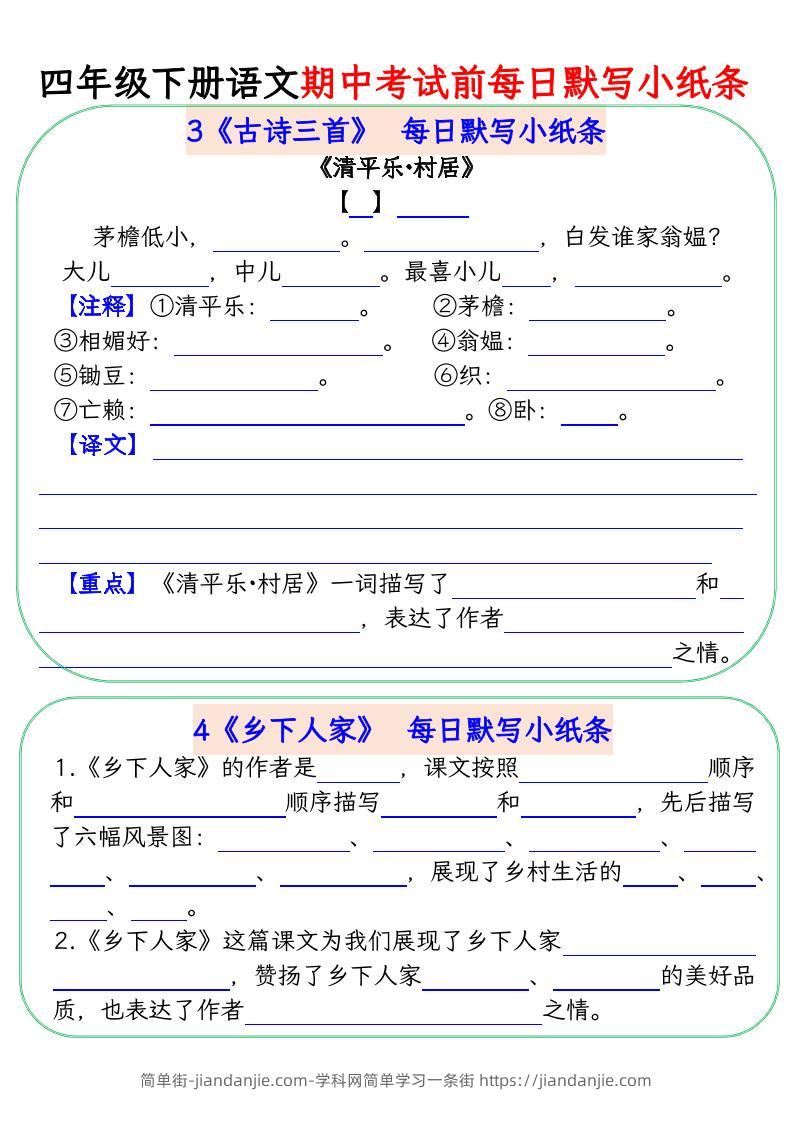 四年级下册语文期中考试前每日默写小纸条
3《古诗三首》 每日默写小纸条
《清平乐·村居》
【__】______
茅檐低小，__________。______________，白发谁家翁媪？
大儿________，中儿________。最喜小儿____，____________。
【注释】①清平乐：_______。 ②茅檐：___________。
③相媚好：_________________。 ④翁媪：___________。
⑤锄豆：______________。 ⑥织：_________________。
⑦亡赖：__________________________。⑧卧：_____。
【译文】________________________________________________
____________________________________________________________
__________________________________________________________
________________________________________________________
【重点】《清平乐·村居》一词描写了____________________和__
__________________________，表达了作者____________________
____________________________________________________之情。
4《乡下人家》 每日默写小纸条
1.《乡下人家》的作者是_______，课文按照________________顺序
和__________________顺序描写__________和__________，先后描写
了六幅风景图：___________、___________、___________、______
_____、___________、___________，展现了乡村生活的_____、_____、
_____、_____。
2.《乡下人家》这篇课文为我们展现了乡下人家________________
_______________，赞扬了乡下人家_________、_________的美好品
质，也表达了作者_________________________之情。
简单街-jiandanjie.com-学科网简单学习一条街 https://jiandanjie.com